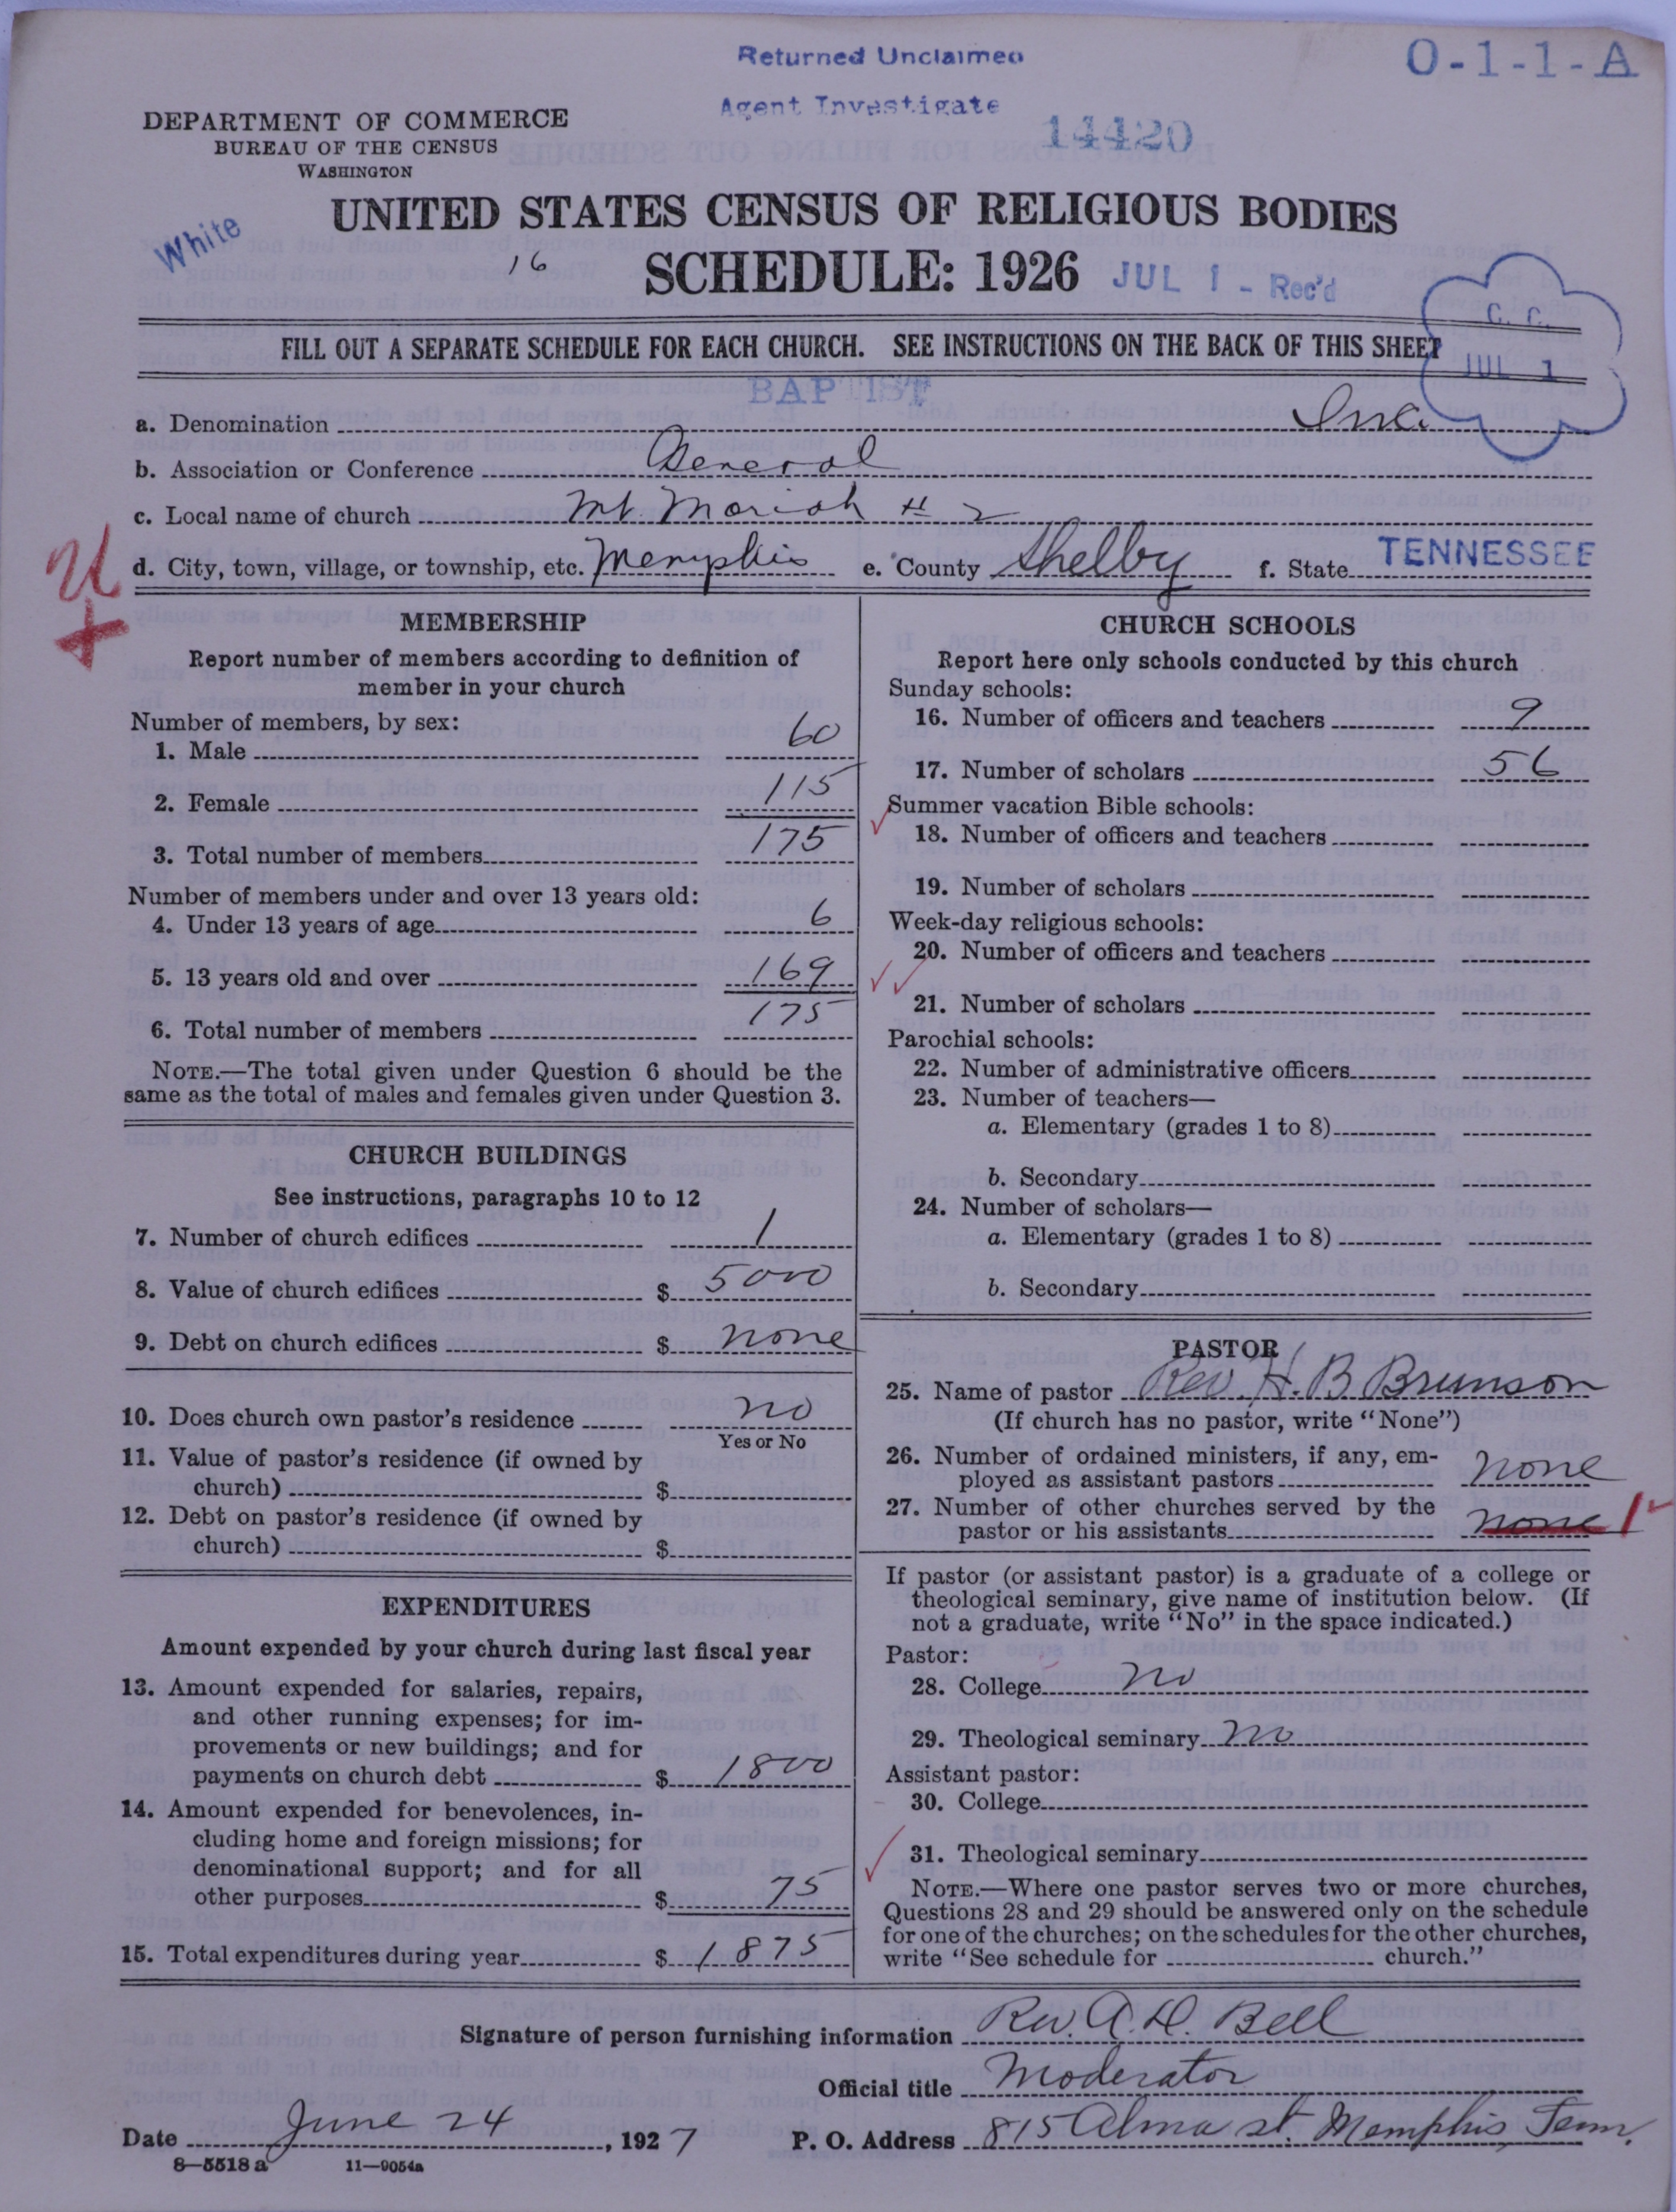 Returned Unclaimed
O-1-1-A
Agent Investigate
14420
DEPARTMENT OF COMMERCE
BUREAU OF THE CENSUS
WASHINGTON
UNITED STATES CENSUS OF RELIGIOUS BODIES
White
16
SCHEDULE: 1926
JUL 1 - Rec'd
C. C.
JUL 1
FILL OUT A SEPARATE SCHEDULE FOR EACH CHURCH. SEE INSTRUCTIONS ON THE BACK OF THIS SHEET
BAPTIST
a. Denomination
b. Association or Conference General
c. Local name of church Mt. Moriah # 2
d. City, town, village, or township, etc. Memphis e. County Shelby f. State TENNESSEE
MEMBERSHIP
Report number of members according to definition of
member in your church
Number of members, by sex:
1. Male 60
2. Female 115
3. Total number of members 175
Number of members under and over 13 years old:
4. Under 13 years of age 6
5. 13 years old and over 169
6. Total number of members 175
NOTE.—The total given under Question 6 should be the
same as the total of males and females given under Question 3.
CHURCH BUILDINGS
See instructions, paragraphs 10 to 12
7. Number of church edifices 1
8. Value of church edifices $ 5000
9. Debt on church edifices $ none
10. Does church own pastor's residence no
Yes or No
11. Value of pastor's residence (if owned by
church) $
12. Debt on pastor's residence (if owned by
church) $
EXPENDITURES
Amount expended by your church during last fiscal year
13. Amount expended for salaries, repairs,
and other running expenses; for im-
provements or new buildings; and for
payments on church debt $ 1800
14. Amount expended for benevolences, in-
cluding home and foreign missions; for
denominational support; and for all
other purposes $ 75
15. Total expenditures during year $ 1875
CHURCH SCHOOLS
Report here only schools conducted by this church
Sunday schools:
16. Number of officers and teachers 9
17. Number of scholars 56
Summer vacation Bible schools:
18. Number of officers and teachers
19. Number of scholars
Week-day religious schools:
20. Number of officers and teachers
21. Number of scholars
Parochial schools:
22. Number of administrative officers
23. Number of teachers—
a. Elementary (grades 1 to 8)
b. Secondary
24. Number of scholars—
a. Elementary (grades 1 to 8)
b. Secondary
PASTOR
25. Name of pastor Rev. H. B Brunson
(If church has no pastor, write "None")
26. Number of ordained ministers, if any, em-
ployed as assistant pastors none
27. Number of other churches served by the
pastor or his assistants none 1
If pastor (or assistant pastor) is a graduate of a college or
theological seminary, give name of institution below. (If
not a graduate, write "No" in the space indicated.)
Pastor:
28. College no
29. Theological seminary no
Assistant pastor:
30. College
31. Theological seminary
NOTE.—Where one pastor serves two or more churches,
Questions 28 and 29 should be answered only on the schedule
for one of the churches; on the schedules for the other churches,
write "See schedule for church."
Signature of person furnishing information Rev. A. D. Bell
Official title Moderator
Date June 24, 1927 P. O. Address 815 Alma st. Memphis Tenn.
8—5518 a 11—9054a